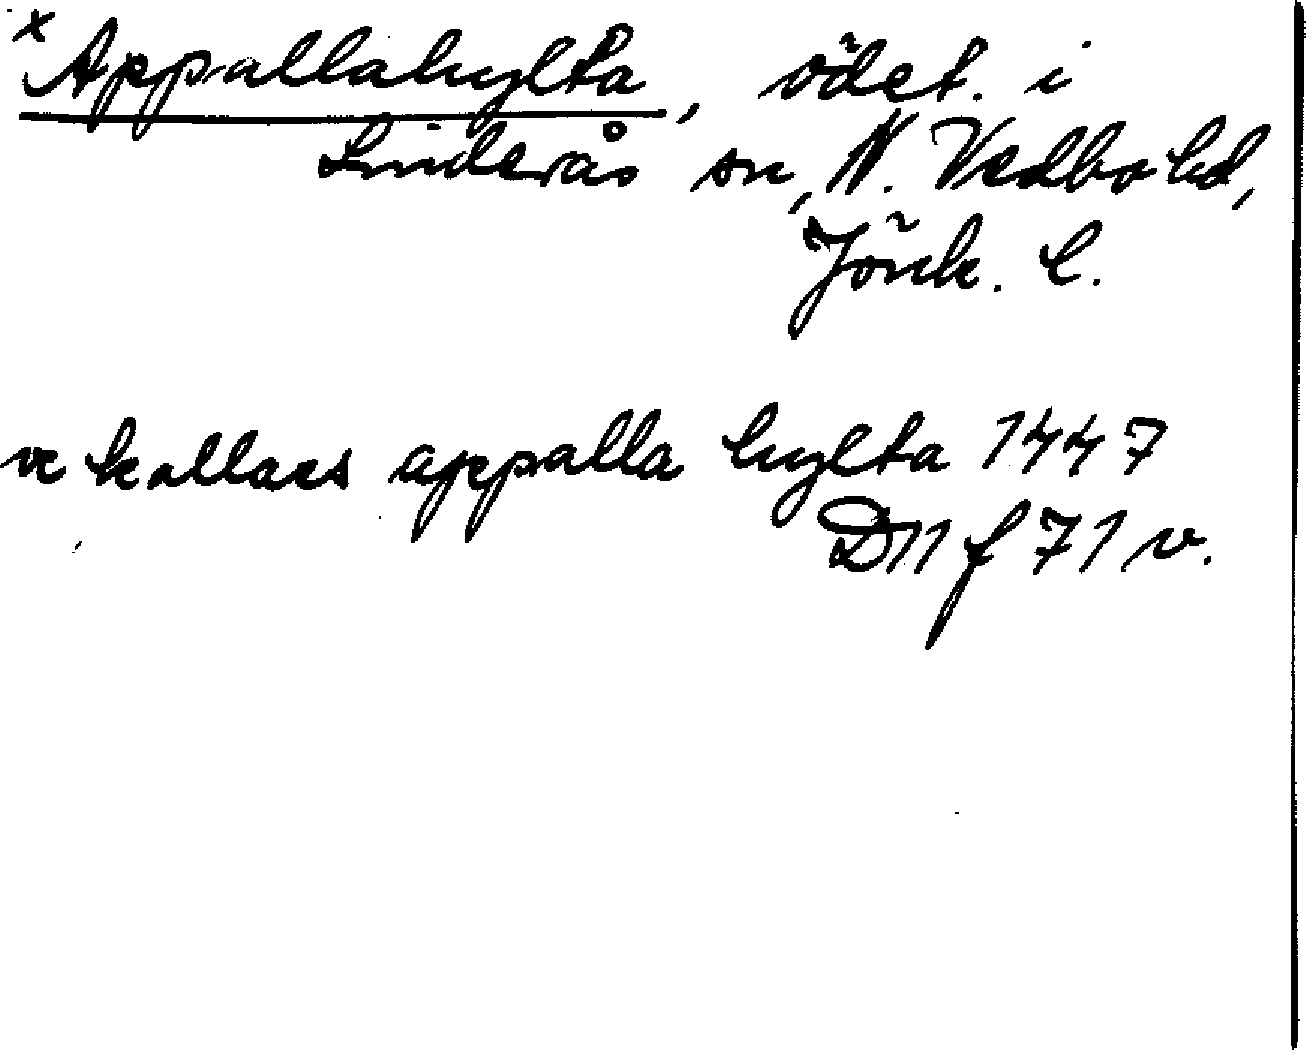 x Appallahylta, ödet. i
Linderås sn, N. Vedbo hd,
Jönk. l.
kallaes appalla hylta 1447
D11 f 71 v.